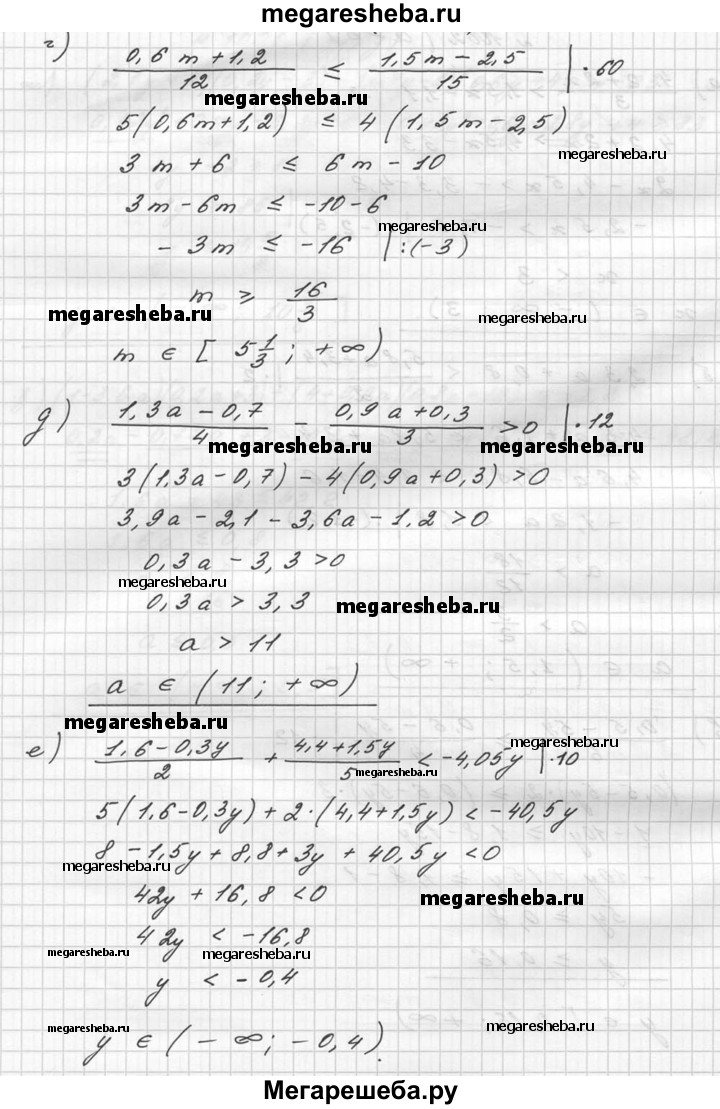 megaresheba.ru
г) (0,6m+1,2)/12 ≤ (1,5m-2,5)/15 | ·60
megaresheba.ru
5(0,6m+1,2) ≤ 4(1,5m-2,5)
megaresheba.ru
3m+6 ≤ 6m-10
3m-6m ≤ -10-6
megaresheba.ru
-3m ≤ -16 | :(-3)
m ≥ 16/3
megaresheba.ru megaresheba.ru
m ∈ [5 1/3; +∞)
д) (1,3a-0,7)/4 - (0,9a+0,3)/3 >0 | ·12
megaresheba.ru megaresheba.ru
3(1,3a-0,7)-4(0,9a+0,3)>0
3,9a-2,1-3,6a-1,2>0
0,3a-3,3>0
megaresheba.ru
0,3a > 3,3 megaresheba.ru
a > 11
a ∈ (11; +∞)
megaresheba.ru
megaresheba.ru
е) (1,6-0,3y)/2 + (4,4+1,5y)/5 < -4,05y | ·10
megaresheba.ru
5(1,6-0,3y)+2·(4,4+1,5y) < -40,5y
8-1,5y+8,8+3y+40,5y <0
megaresheba.ru
42y+16,8 <0 megaresheba.ru
42y < -16,8
megaresheba.ru megaresheba.ru
y < -0,4
megaresheba.ru megaresheba.ru
y ∈ (-∞; -0,4).
Мегарешеба.ру